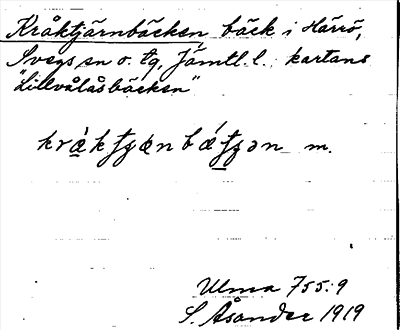 Kråktjärnbäcken bäck i Härrö,
Svegs sn o. tg, Jämtl. l. kartans
"Lillvålåsbäcken"
m.
Ulma 755:9
S. Åsander 1919